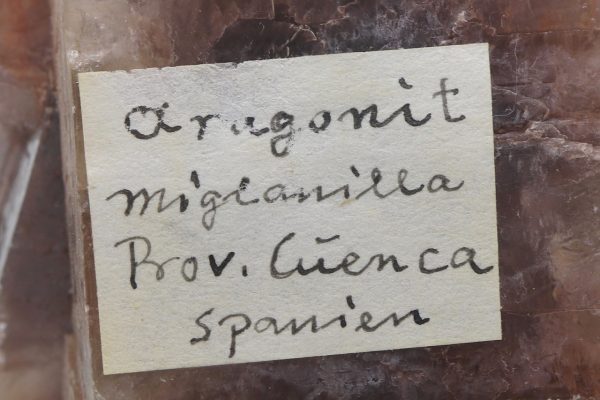 Aragonit
Miglanilla
Prov. Cuenca
Spanien